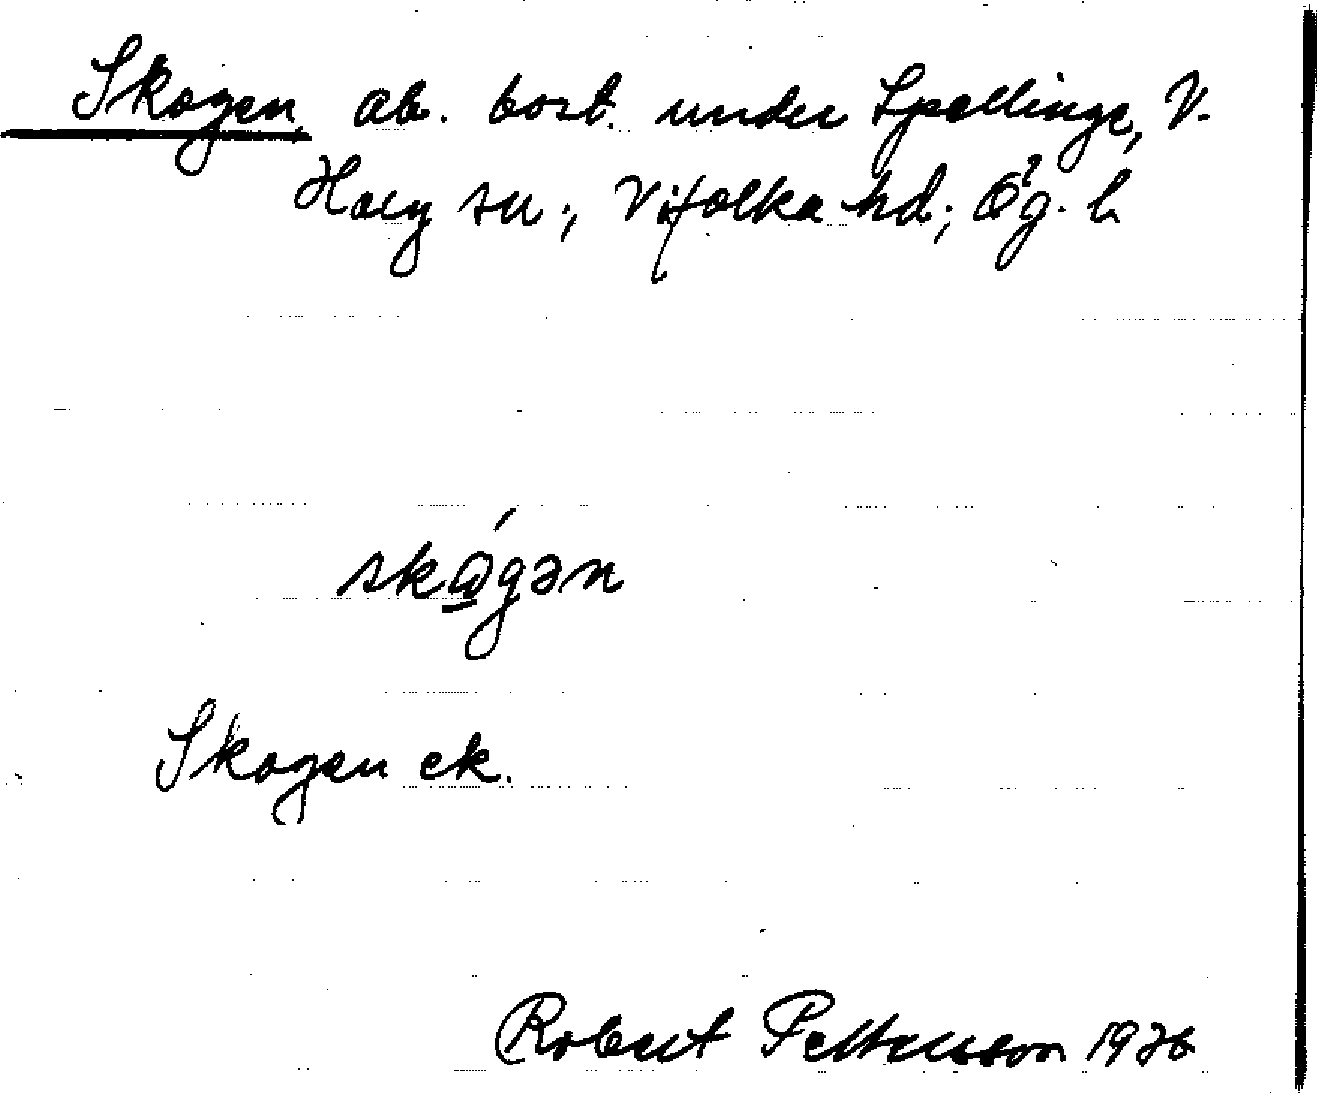 Skogen, ab. bost. under Spellinge, V.
Harg sn., Vifolka hd., Ög. l.
skωgən
Skogen ek.
Robert Pettersson 1926